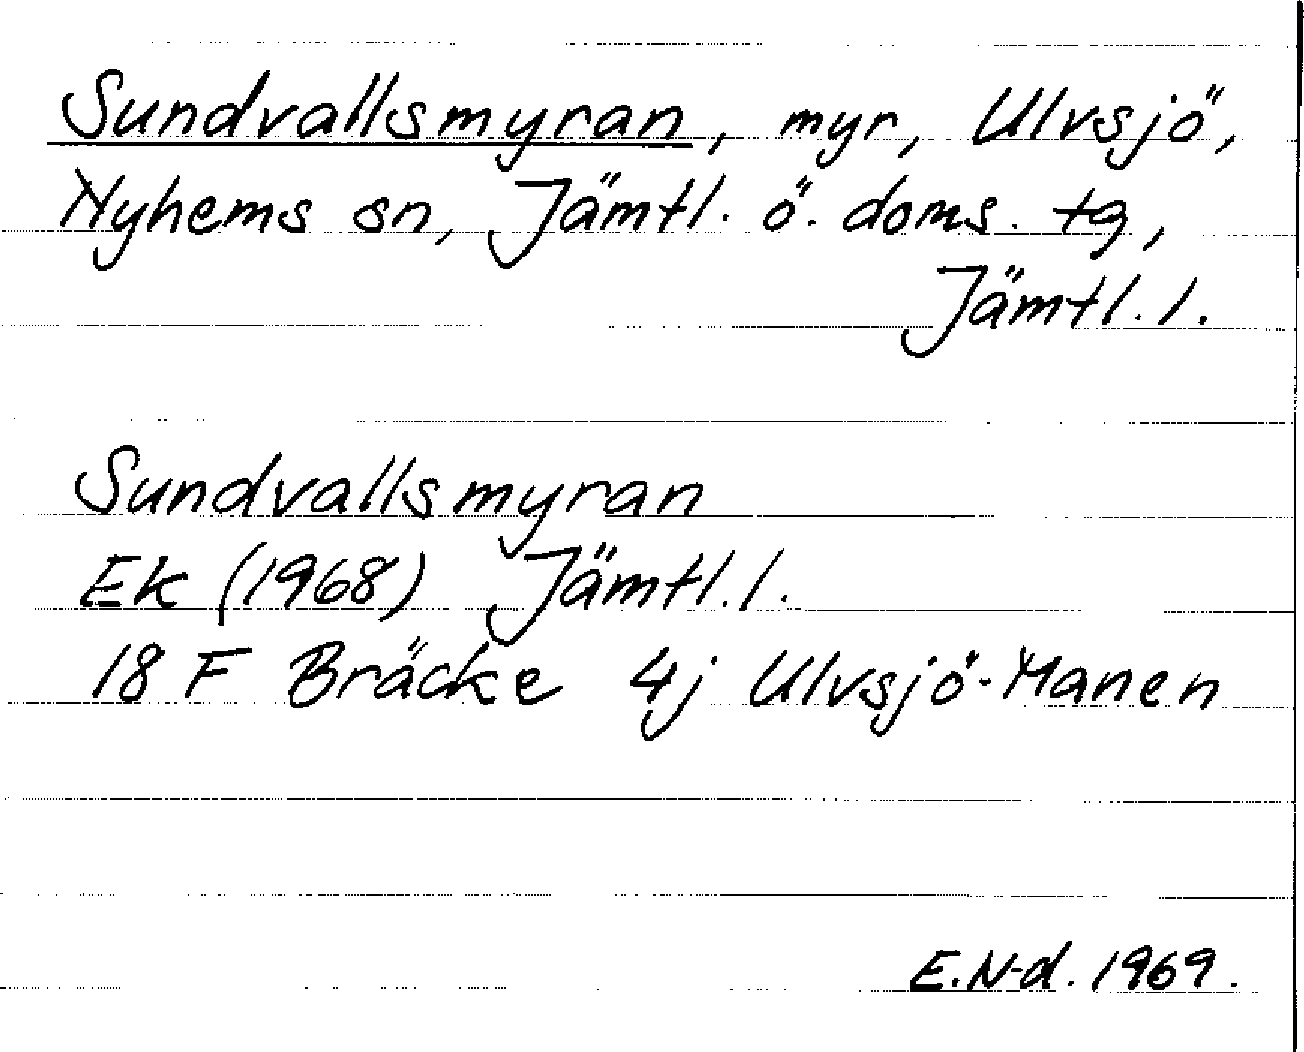 Sundvallsmyran, myr, Ulvsjö,
Nyhems sn, Jämtl. ö. doms. tg,
Jämtl. l.
Sundvallsmyran
Ek (1968) Jämtl. l.
18 F Bräcke 4j Ulvsjö-Manen
E.N-d. 1969.